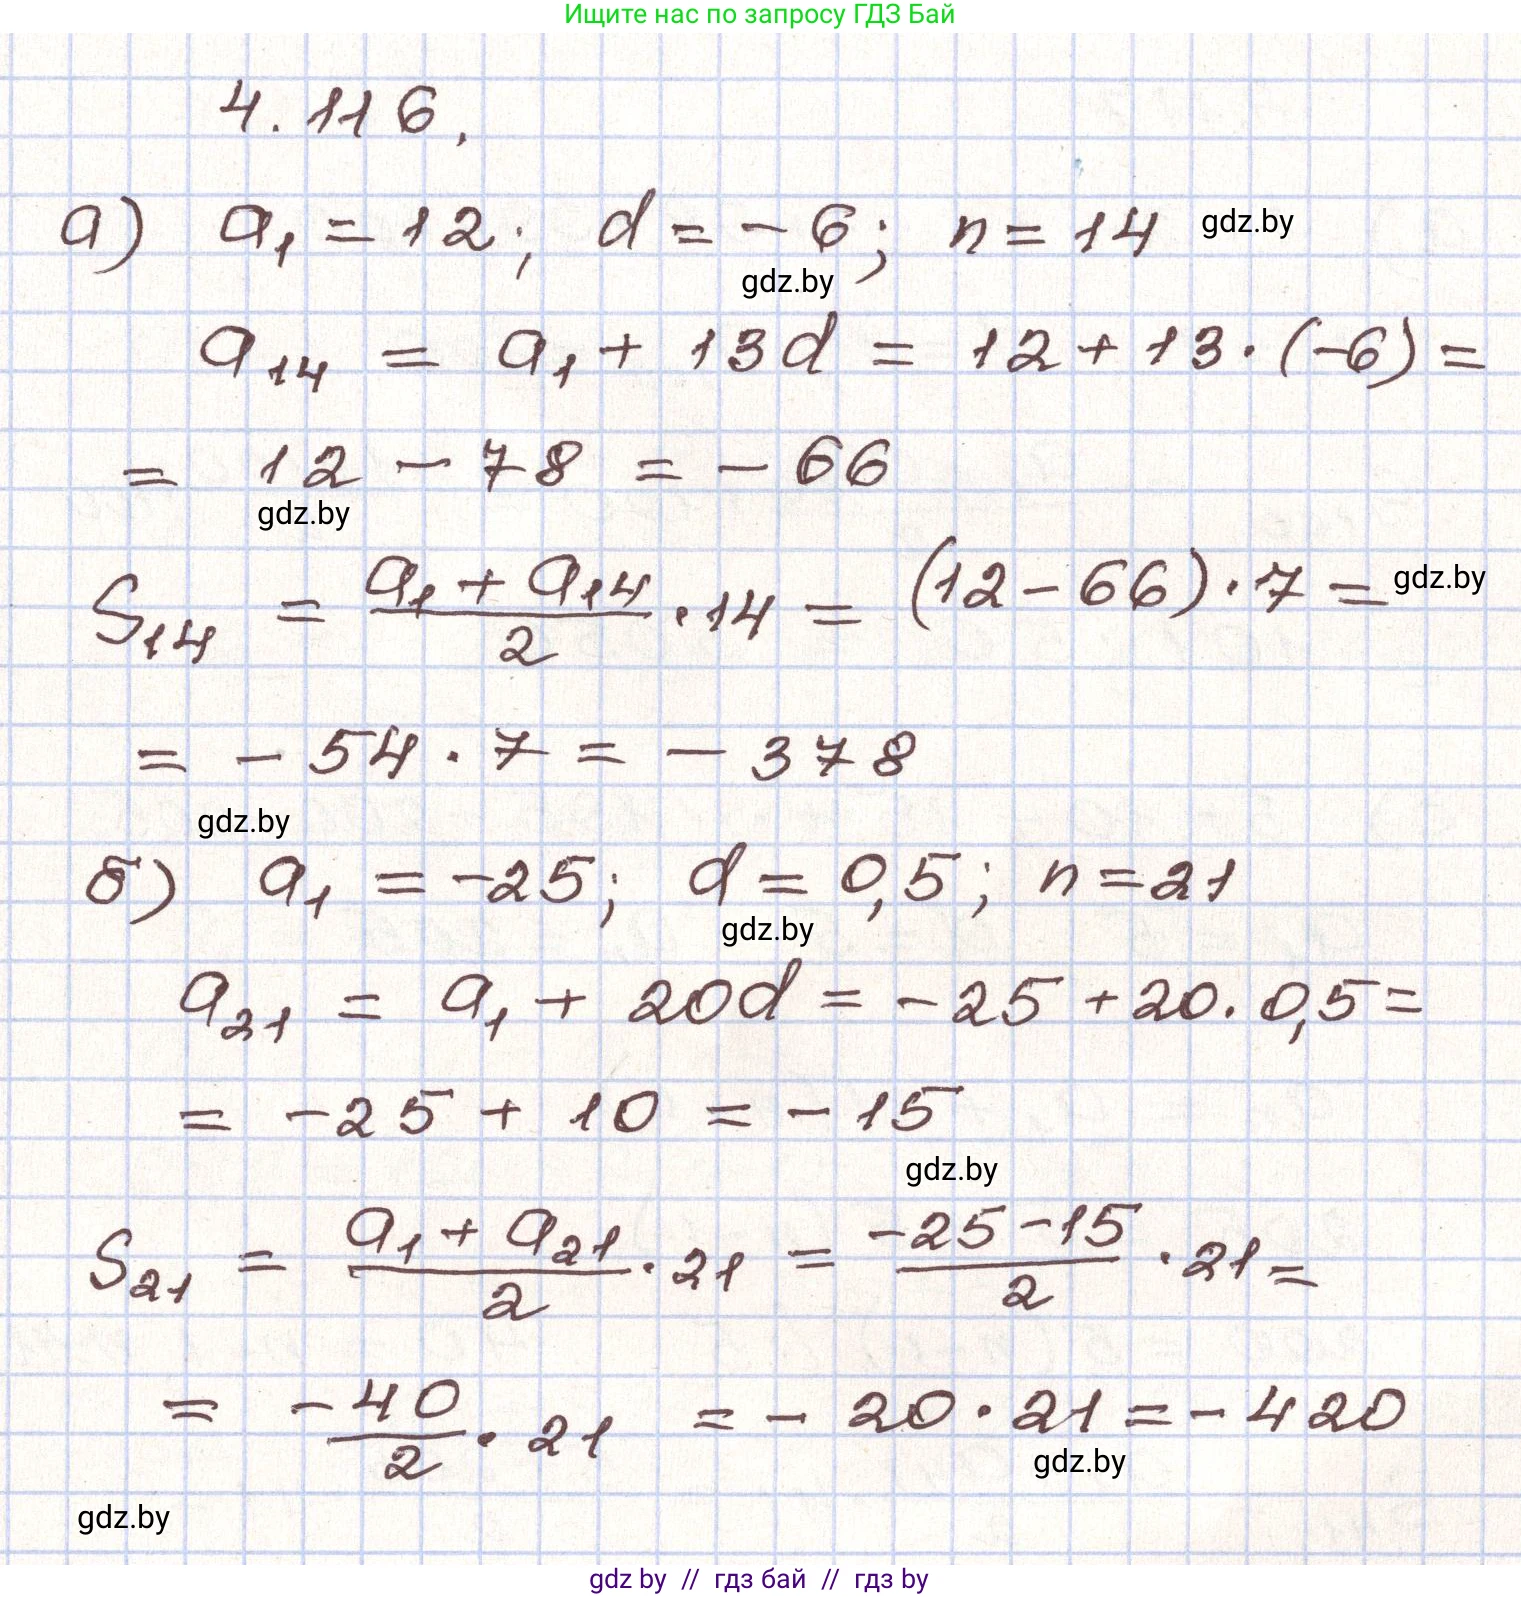 Ищите нас по запросу ГДЗ Бай
4.116.
а) a₁ = 12; d = -6; n = 14 gdz.by
gdz.by
a₁₄ = a₁ + 13d = 12 + 13 · (-6) =
= 12 - 78 = - 66
gdz.by
S₁₄ = (a₁ + a₁₄)/2 · 14 = (12 - 66) · 7 = gdz.by
= - 54 · 7 = - 378
gdz.by
б) a₁ = -25; d = 0,5; n = 21
gdz.by
a₂₁ = a₁ + 20d = -25 + 20 · 0,5 =
= -25 + 10 = - 15
gdz.by
S₂₁ = (a₁ + a₂₁)/2 · 21 = (-25 - 15)/2 · 21 =
= -40/2 · 21 = - 20 · 21 = - 420
gdz.by
gdz.by
gdz by // гдз бай // гдз by